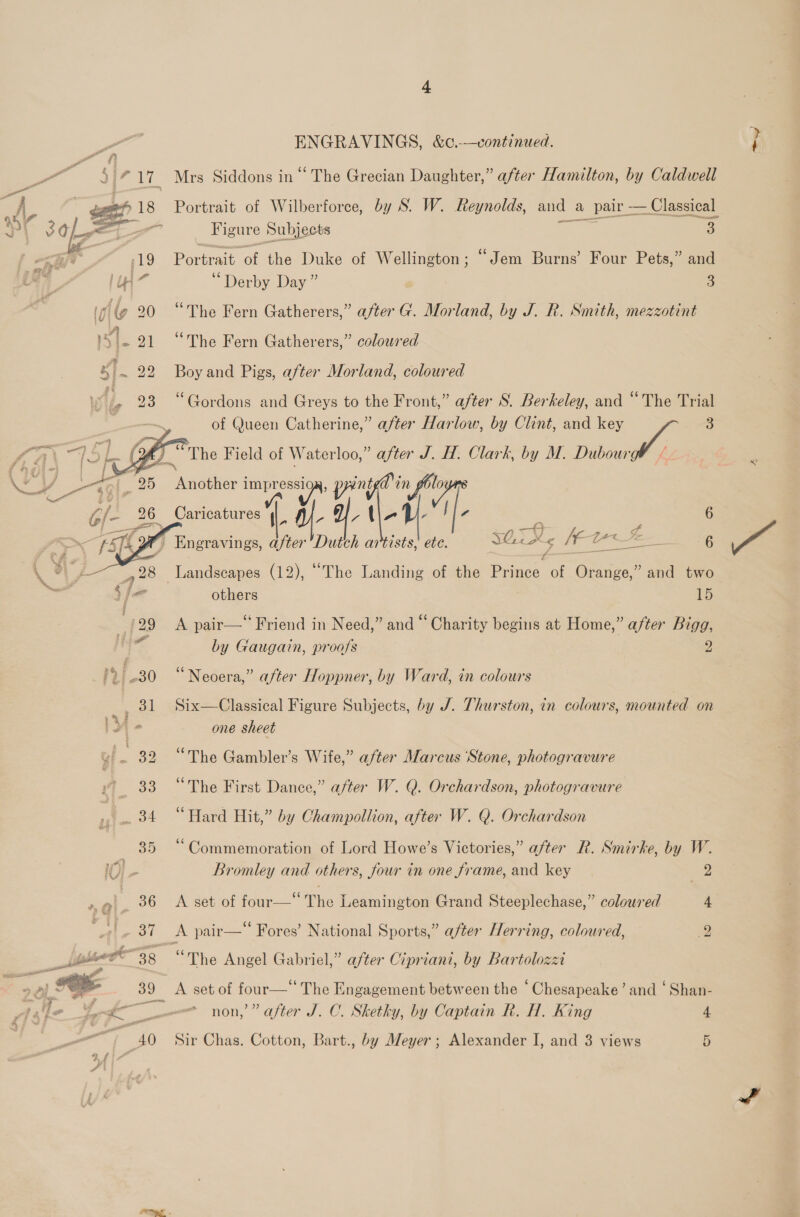 4
ENGRAVINGS, &c.—continued.
17 Mrs Siddons in “The Grecian Daughter,” after Hamilton, by Caldwell
18 Portrait of Wilberforce, by S. W. Reynolds, and a pair — Classical
Figure Subjects 3
19 Portrait of the Duke of Wellington; “Jem Burns’ Four Pets,” and
“Derby Day” 3
20 “The Fern Gatherers,” after G. Morland, by J. R. Smith, mezzotint
21 “The Fern Gatherers,” coloured
22 Boy and Pigs, after Morland, coloured
23 “Gordons and Greys to the Front,” after S. Berkeley, and “The Trial
of Queen Catherine,” after Harlow, by Clint, and key 3
“The Field of Waterloo,” after J. H. Clark, by M. Dubourg
25 Another impression, printed in colours
26 Caricatures 6
Engravings, after Dutch artists, etc. 6
28 Landscapes (12), “The Landing of the Prince of Orange,” and two
others 15
29 A pair—“Friend in Need,” and “Charity begins at Home,” after Bigg,
by Gaugain, proofs 2
30 “Neoera,” after Hoppner, by Ward, in colours
31 Six—Classical Figure Subjects, by J. Thurston, in colours, mounted on
one sheet
32 “The Gambler’s Wife,” after Marcus Stone, photogravure
33 “The First Dance,” after W. Q. Orchardson, photogravure
34 “Hard Hit,” by Champollion, after W. Q. Orchardson
35 “Commemoration of Lord Howe’s Victories,” after R. Smirke, by W.
Bromley and others, four in one frame, and key 2
36 A set of four—“The Leamington Grand Steeplechase,” coloured 4
37 A pair—“Fores’ National Sports,” after Herring, coloured, 2
38 “The Angel Gabriel,” after Cipriani, by Bartolozzi
39 A set of four—“The Engagement between the ‘Chesapeake’ and ‘Shan-
non,’” after J. C. Sketky, by Captain R. H. King 4
40 Sir Chas. Cotton, Bart., by Meyer; Alexander I, and 3 views 5